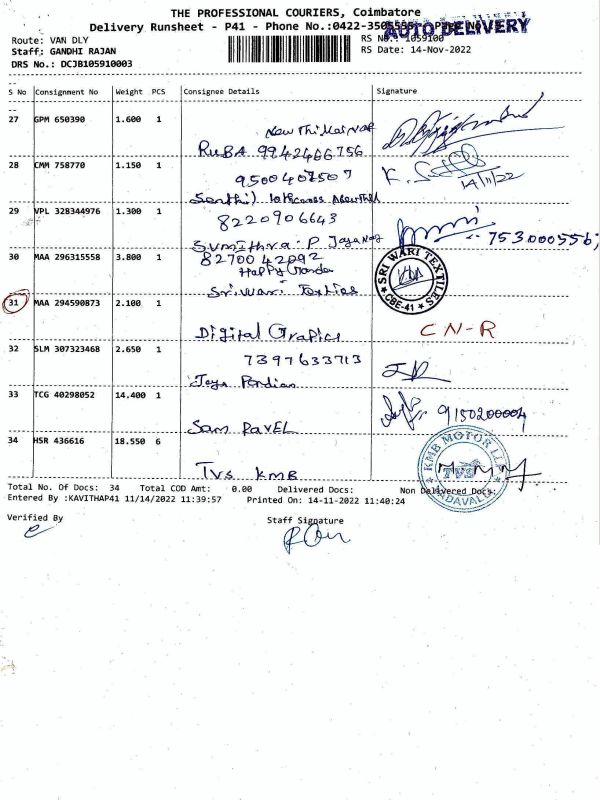 THE PROFESSIONAL COURIERS, Coimbatore
Delivery Runsheet - P41 - Phone No.:0422-
AUTO DELIVERY
Route: VAN DLY
RS No.: 1059100
Staff: GANDHI RAJAN
RS Date: 14-Nov-2022
DRS No.: DCJB105910003
S No Consignment No Weight PCS Consignee Details Signature
27 GPM 650390 1.600 1
RUBA 9942466756
28 CMM 758770 1.150 1
9500407507
14/11/22
29 VPL 328344976 1.300 1
8220906643
Sumithra. P
30 MAA 296315558 3.800 1
8270042092
SriWari Textiles
SRI WARI TEXTILES
CBE-41
31 MAA 294590873 2.100 1
Digital Grafics
CN-R
32 SLM 307323468 2.650 1
7397633713
Jaya Pandian
33 TCG 40298052 14.400 1
9150200004
Sam PavEL
34 HSR 436616 18.550 6
TVS KMB
KMB MOTOR LLP
TVS
Total No. Of Docs: 34 Total COD Amt: 0.00 Delivered Docs: Non Delivered Docs:
Entered By :KAVITHAP41 11/14/2022 11:39:57 Printed On: 14-11-2022 11:40:24
Verified By
Staff Signature